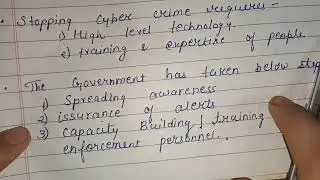 • Stopping Cyber crime requires -
1) High level technology
2) training & expertise of people
• The Government has taken below step
1) Spreading awareness
2) issurance of alerts
3) Capacity Building | training
enforcement personnel.